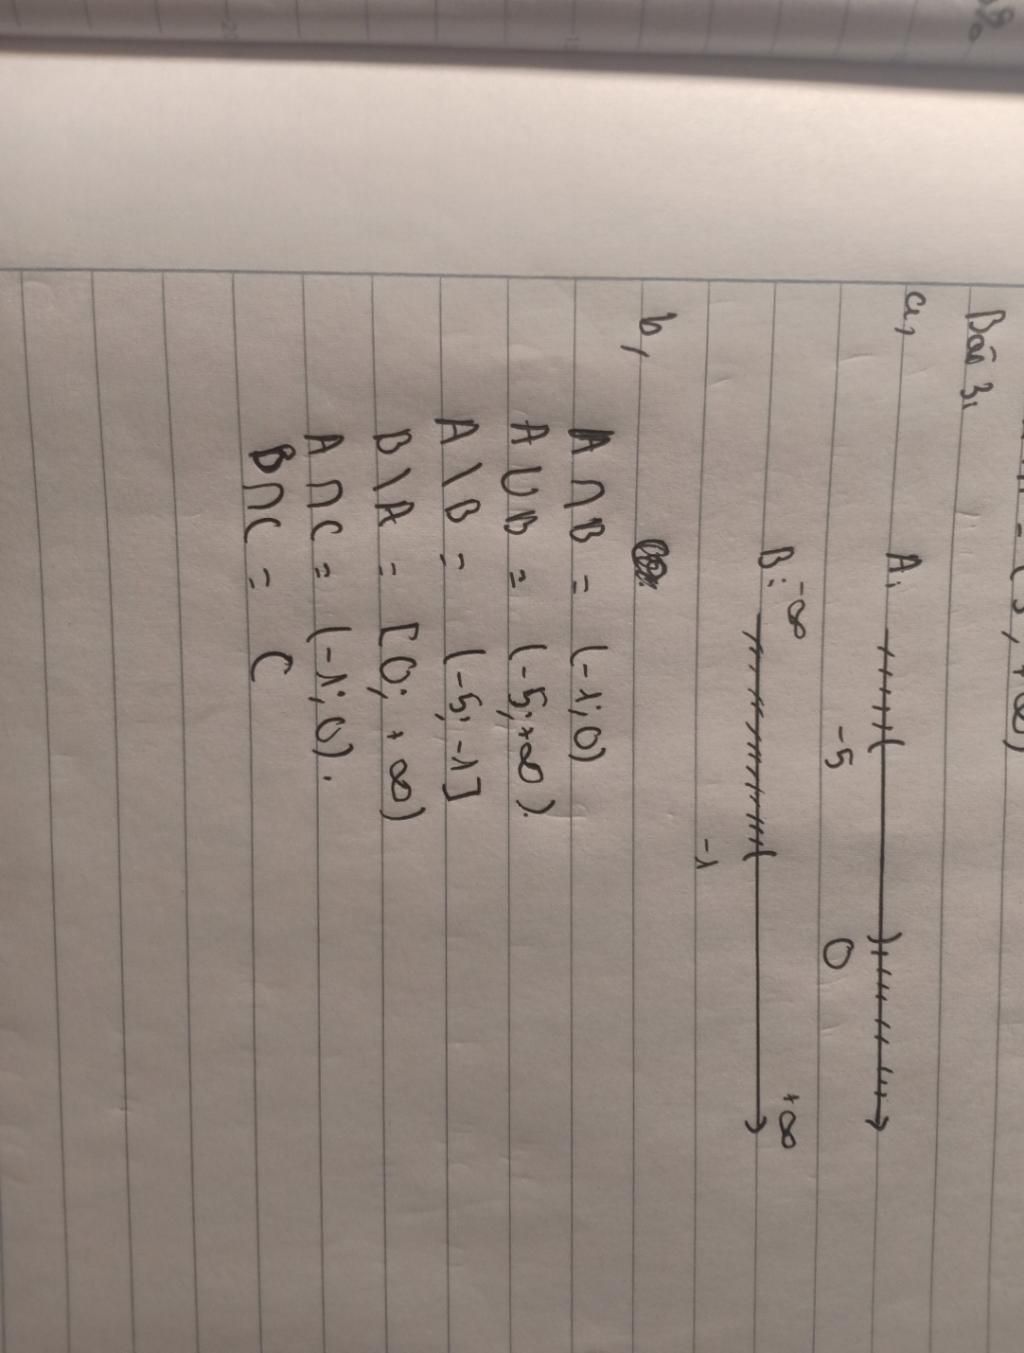 Bài 3,
a,
A:
-5
0
B:
-∞
+∞
-1
b,
A ∩ B = (-1; 0)
A ∪ B = (-5; +∞).
A \ B = (-5; -1]
B \ A = [0; +∞)
A ∩ C = (-1; 0).
B ∩ C = C